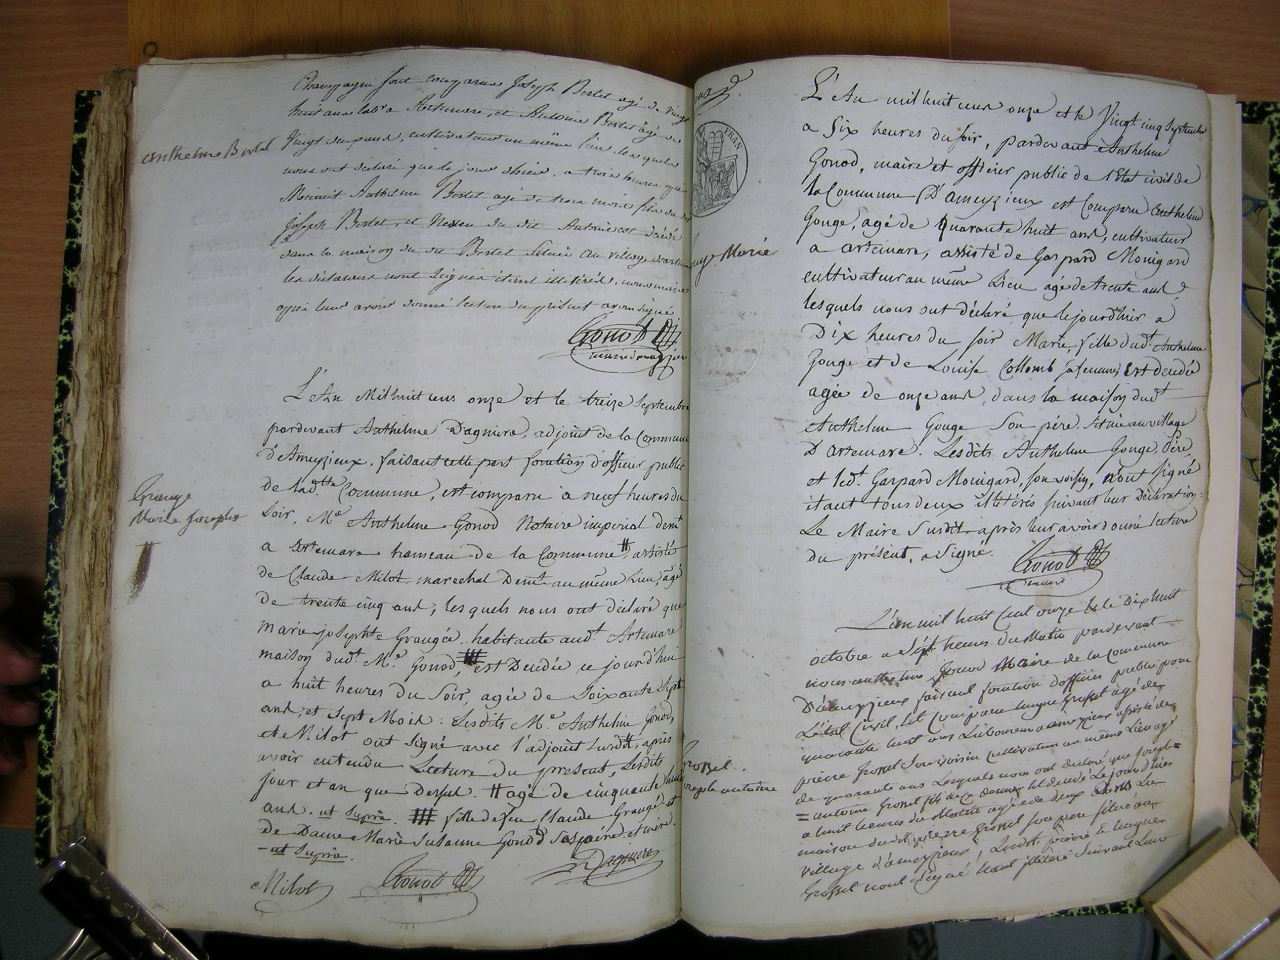 Champagne sont comparus Joseph Bertet agé de vingt
huit ans lab.r a Artemare, et Antoine Bertet agé de
vingt
cultivateur au même lieu lesquels
nous ont déclaré que le jour d'hier a trois heures
Anthelme Bertet
Anthelme Bertet agé de trois mois fils du dit
Joseph Bertet, et Neveu du dit Antoine est décédé
dans la maison du dit Bertet Située au village d'artemare
les déclarans n'ont Signé étant illitérés, nous maire
après leur avoir donné lecture du présent avons Signé
Gonod
L'An Mil huit cens onze et le treize Septembre
pardevant Anthelme Dagniere, adjoint de la Commune
d'Ameyzieux, faisant cette part fonction d'officier public
de lad.tte Commune, est comparu à neuf heures du
Grangé
Marie Josephte
Soir, M.e Anthelme Gonod Notaire impérial dem.t
a Artemare hameau de la Commune # assisté
de Claude Milot marechal dem.t au même Lieu, agé
de trente cinq ans; lesquels nous ont déclaré que
Marie josephte Grangée habitante aud.t Artemare
maison dud.t M.e Gonod, est Décédée ce jourd'hui
a huit heures du Soir, agée de Soixante Sept
ans, et Sept Mois: Lesdits M.e Anthelme Gonod,
et Milot ont Signé avec l'adjoint Susdit, après
avoir entendu Lecture du présent, Lesdits
jour et an que dessus. # agé de cinquante
ans. ut Supra. fille de feu Claude Grangé et
de Dame Marie Susanne Gonod Ses père et mère.
- ut Supra.
Milot Gonod Dagniere
L'An mil huit cens onze et le Vingt cinq Septembre
a Six heures du Soir, pardevant Anthelme
Gonod, maire et officier public de l'Etat civil de
la Commune D'ameyzieux est Comparu Anthelme
Gouge, agé de Quarante huit ans, cultivateur
Marie
a artemare, assisté de Gaspard Monigard
cultivateur au même Lieu agé de trente ans
lesquels nous ont déclaré que le jourd'hier a
Dix heures du Soir Marie, fille dud.t Anthelme
Gouge et de Louise Collomb sa femme, Est décédée
agée de onze ans, dans la maison dud.t
Anthelme Gouge Son père Située au village
D'artemare. Lesdits Anthelme Gouge Père
et led.t Gaspard Monigard, Son voisin, n'ont Signé
étant tous deux illitérés Suivant leur Déclaration.
Le Maire Susdit après leur avoir donné lecture
du présent, a Signé.
Gonod
maire
L'an mil huit Cent onze & le Dix huit
octobre a Sept heures du Matin pardevant
nous Gonod Maire de la Commune
D'ameyzieux faisant fonction d'officier public pour
L'état Civil, Est Comparu Grossel agé de
quarante huit ans Laboureur a ameyzieux assisté de
Grossel
pierre Grossel Son voisin Cultivateur au même Lieu agé
de quarante ans Lesquels nous ont déclaré que
antoine
antoine Grossel fils est décédé Le jourd'hier
a huit heures du Matin agé de deux
maison dud.t Grossel Son père Située au
village d'ameyzieux
Grossel n'ont Signé illitéré Suivant Leur